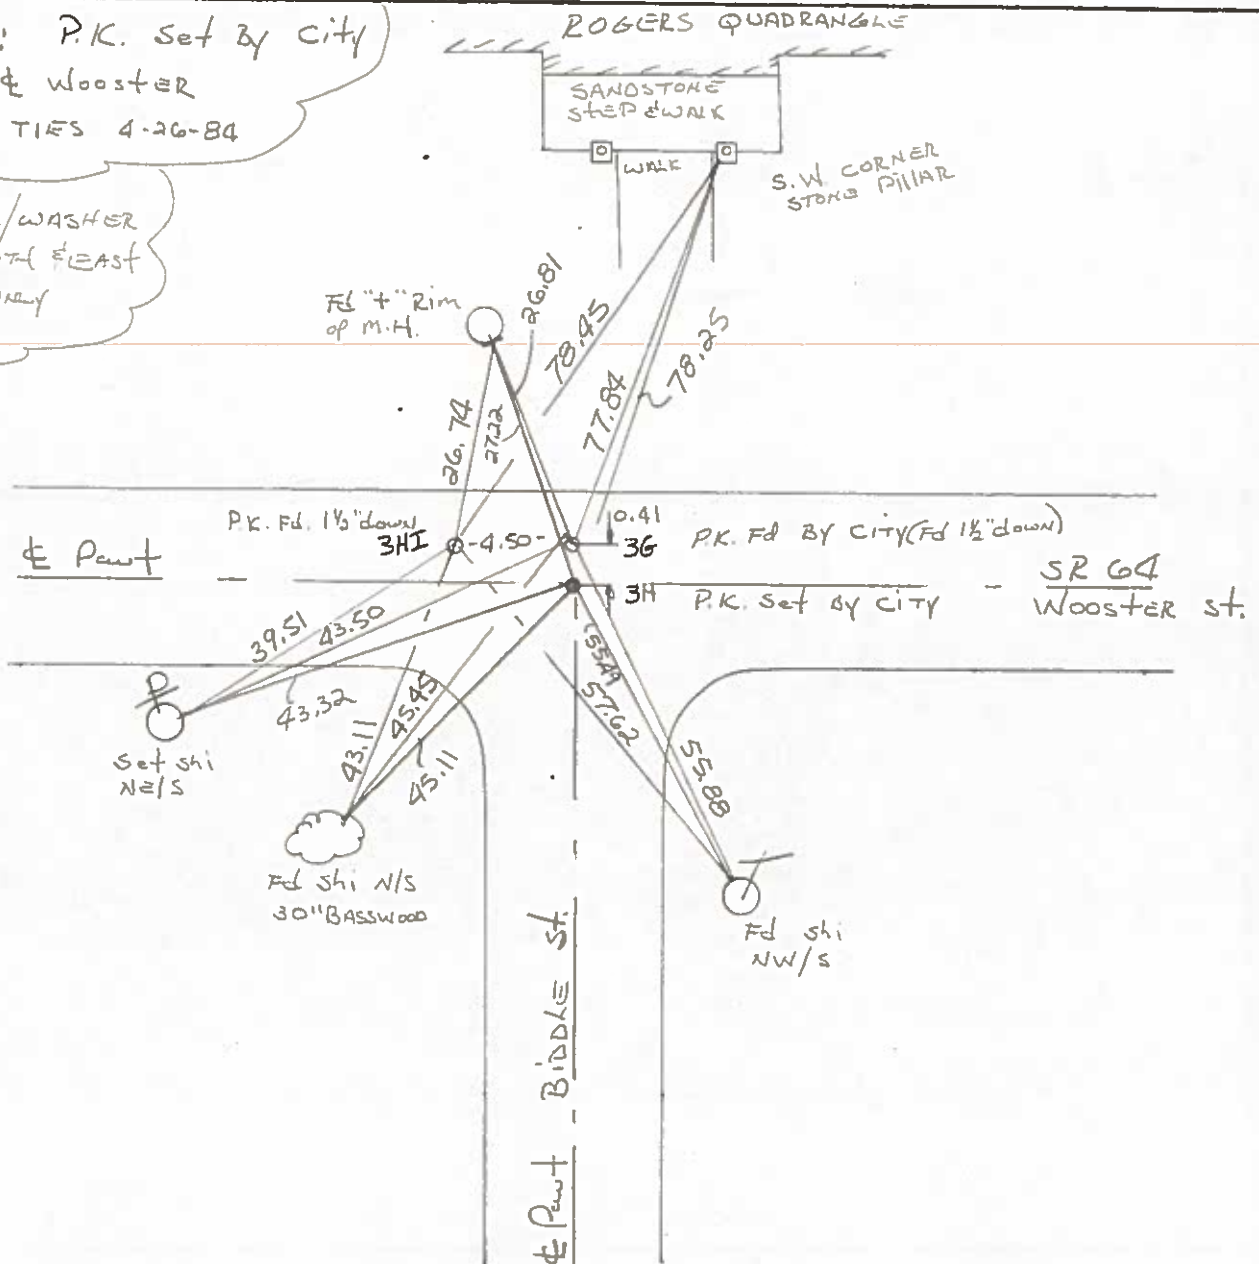 : P.K. Set By City
℄ Wooster
TIES 4-26-84
/WASHER
& EAST
ROGERS QUADRANGLE
SANDSTONE
STEP & WALK
WALK
S.W. CORNER
STONE PILLAR
Fd "+" Rim
of M.H.
26.81
78.45
77.84
78.25
26.74
27.22
P.K. Fd. 1½" down
3HI
-4.50-
0.41
3G
P.K. Fd By City (Fd 1½" down)
℄ Pavt
3H
P.K. Set By City
SR 64
Wooster St.
39.51
43.50
43.32
43.11
45.45
45.11
55.49
57.62
55.88
P
Set shi
NE/S
Fd shi N/S
30" BASSWOOD
Fd shi
NW/S
℄ Pavt - BIDDLE St.